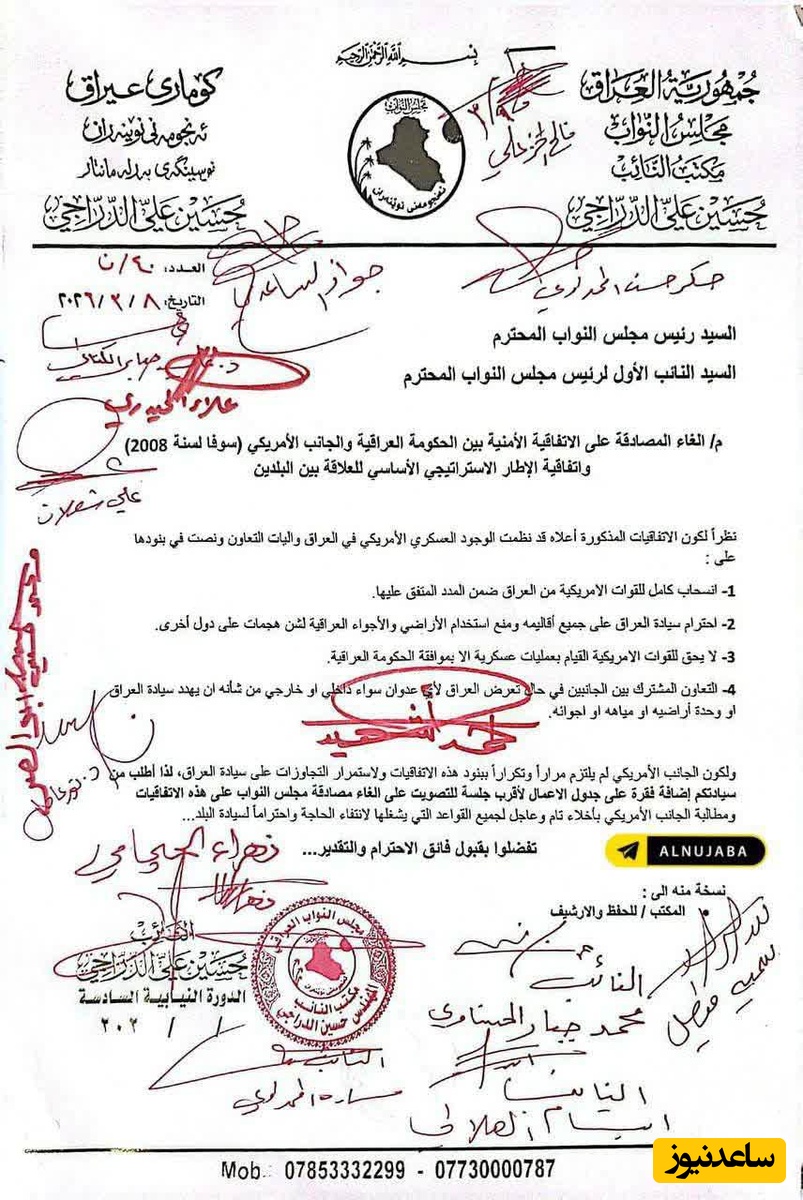 بسم الله الرحمن الرحيم
جمهورية العراق
مجلس النواب
مكتب النائب
حسين علي الدراجي
كوماری عیراق
ئەنجومەنی نوینەران
حسين علي الدراجي
مجلس النواب
فالح الخزعلي
العدد: ٤٠/ن
التاريخ: ٢٠٢٦/٣/٨
جواد الساعدي
علاء الحيدري
السيد رئيس مجلس النواب المحترم
السيد النائب الأول لرئيس مجلس النواب المحترم
م/ الغاء المصادقة على الاتفاقية الأمنية بين الحكومة العراقية والجانب الأمريكي (سوفا لسنة 2008)
واتفاقية الإطار الاستراتيجي الأساسي للعلاقة بين البلدين
نظراً لكون الاتفاقيات المذكورة أعلاه قد نظمت الوجود العسكري الأمريكي في العراق واليات التعاون ونصت في بنودها
على :
1- انسحاب كامل للقوات الامريكية من العراق ضمن المدد المتفق عليها.
2- احترام سيادة العراق على جميع أقاليمه ومنع استخدام الأراضي والأجواء العراقية لشن هجمات على دول أخرى.
3- لا يحق للقوات الامريكية القيام بعمليات عسكرية الا بموافقة الحكومة العراقية.
4- التعاون المشترك بين الجانبين في حال تعرض العراق لأي عدوان سواء داخلي او خارجي من شأنه ان يهدد سيادة العراق
او وحدة أراضيه او مياهه او اجوائه.
ولكون الجانب الأمريكي لم يلتزم مراراً وتكراراً ببنود هذه الاتفاقيات ولاستمرار التجاوزات على سيادة العراق، لذا أطلب من
سيادتكم إضافة فقرة على جدول الاعمال لأقرب جلسة للتصويت على الغاء مصادقة مجلس النواب على هذه الاتفاقيات
ومطالبة الجانب الأمريكي بأخلاء تام وعاجل لجميع القواعد التي يشغلها لانتفاء الحاجة واحتراماً لسيادة البلد...
تفضلوا بقبول فائق الاحترام والتقدير...
ALNUJABA
نسخة منه الى :
• المكتب / للحفظ والارشيف
النائب
حسين علي الدراجي
الدورة النيابية السادسة
/ / ٢٠٢
مجلس النواب العراقي
مكتب النائب
المهندس حسين الدراجي
النائب
محمد جبار
النائب
Mob.: 07853332299 - 07730000787
ساعدنیوز